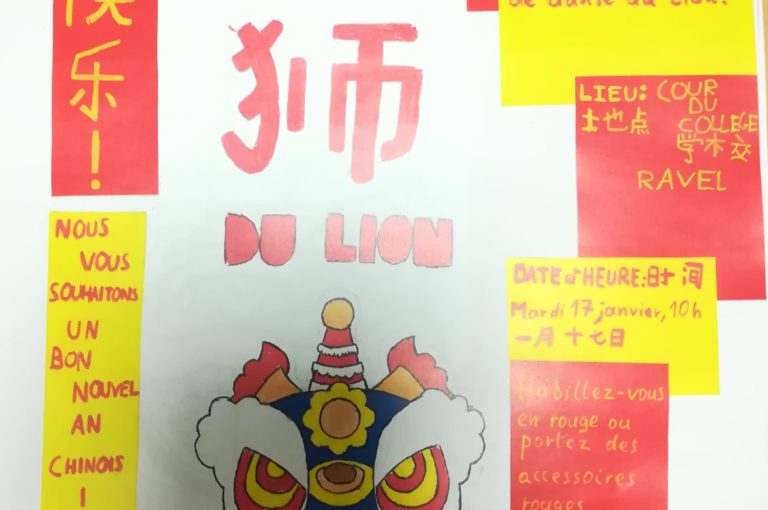 快
乐
!
NOUS
VOUS
SOUHAITONS
UN
BON
NOUVEL
AN
CHINOIS
!
狮
DU LION
de danse du lion!
LIEU: COUR
DU
地点 COLLEGE
学校
RAVEL
DATE et HEURE: 时间
Mardi 17 janvier, 10h
一月十七日
Habillez-vous
en rouge ou
portez des
accessoires
rouges